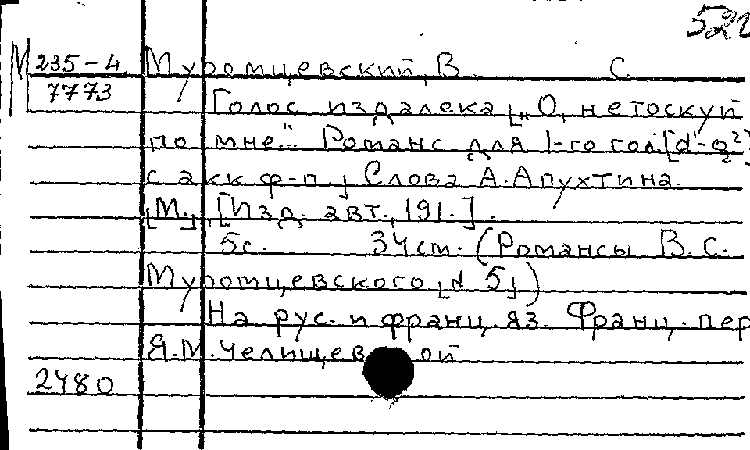 522
М 235-4 Муромцевский, В. С.
7773 Голос издалека „О, не тоскуй
по мне.." Романс для 1-го гол. [d'-g²]
с акк ф-п., Слова А. Апухтина.
[М.], [Изд. авт., 191.].
5с. 34 см. (Романсы В. С.
Муромцевского, № 5)
На рус. и франц. яз. Франц. пер
Я. М. Челищевой
2480